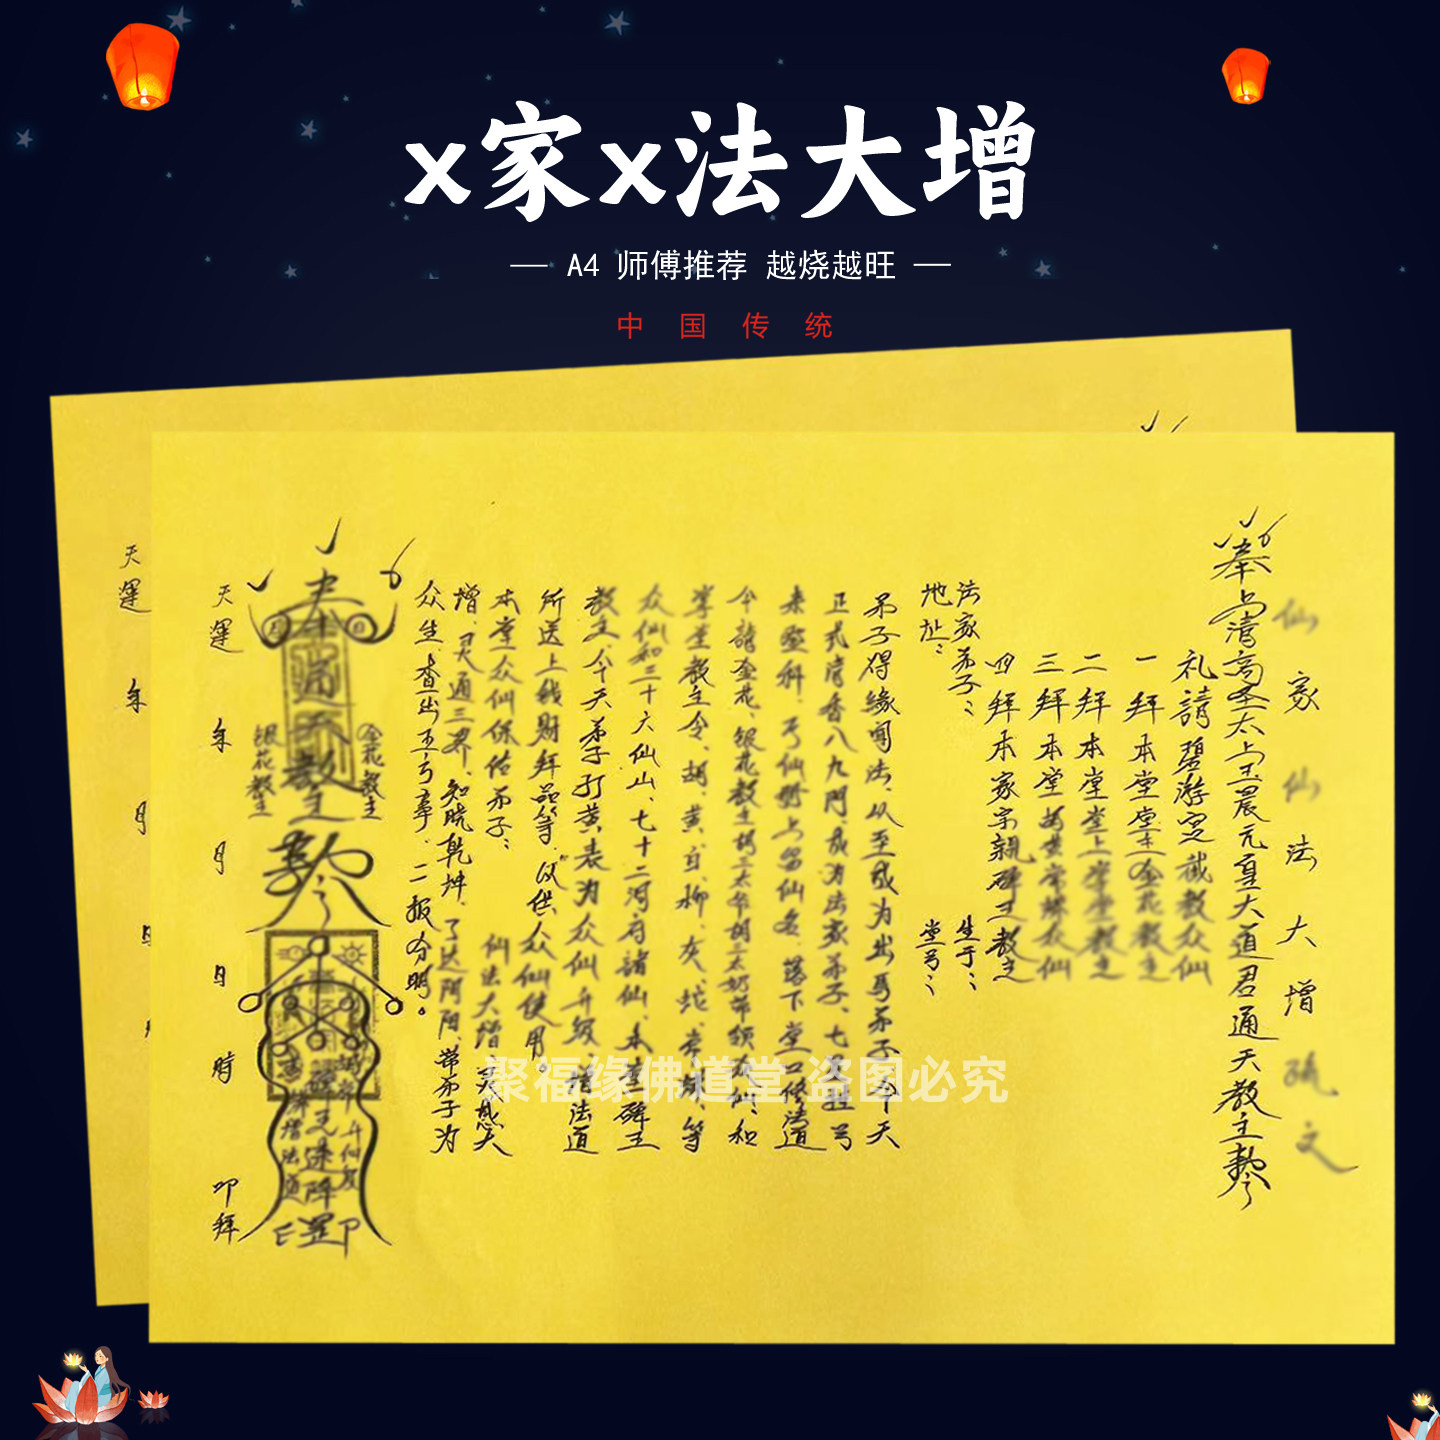 x家x法大增
A4 师傅推荐 越烧越旺
中国传统
仙家仙法大增疏文
奉上清高圣太上玉晨元皇大道君通天教主勅令
礼請碧游宮截教众仙
一拜本堂堂主金花教主
二拜本堂堂上掌堂教主
三拜本堂胡黄常蟒众仙
四拜本家宗親碑王教主
法家弟子：
生于：
地址：
堂号：
弟子得緣闻法、从至成为出馬弟子奉天
正式清香八九門、成为法家弟子、七
来 科、 仙 上 仙名、落下堂口修法道
今請金花、银花教主胡三太爷胡三太奶带领 仙、和
掌堂教主令、胡、黄、白、柳、灰、蛇、常、蟒、等
众仙和三十六仙山、七十二河府諸仙、本堂碑王
教主、今天弟子打黄表为众仙升级、 法道
所送上钱财拜品等、仅供众仙使用。
本堂众仙保佑弟子： 仙法大增、灵感大
增、灵通三界、知晓乾坤、了达阴阳、带弟子为
众生、查出五弓事、一一报分明。
奉通天教主
金花教主
银花教主
勅令
天運 年 月 日 時 叩拜
天運 年 月
聚福缘佛道堂 盗图必究